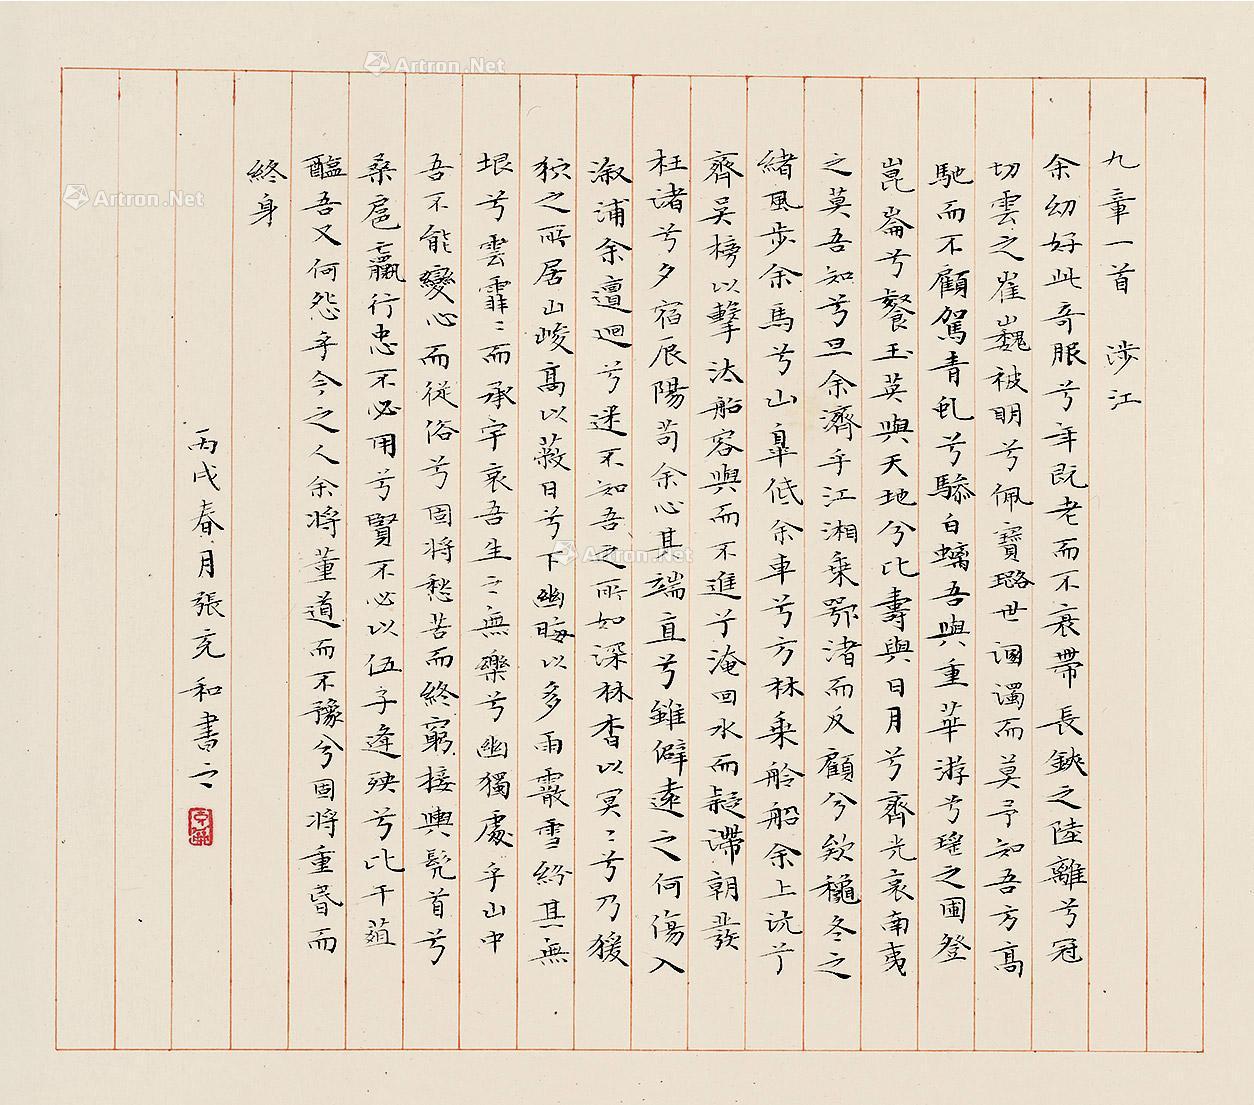 九章一首 涉江
余幼好此奇服兮年既老而不衰帶長鋏之陸離兮冠
切雲之崔巍被明兮佩寶璐世溷濁而莫予知吾方高
馳而不顧駕青虬兮驂白螭吾與重華游兮瑤之圃登
崑崙兮餐玉英與天地兮比壽與日月兮齊光哀南夷
之莫吾知兮旦余濟乎江湘乗鄂渚而反顧兮欸龝冬之
緒風步余馬兮山皐低余車兮方林乗舲船余上沅兮
齊吴榜以擊汰船容與而不進兮淹回水而凝滯朝發
枉渚兮夕宿辰陽苟余心其端直兮雖僻遠之何傷入
溆浦余邅迴兮迷不知吾之所如深林杳以冥〻兮乃猨
狖之所居山峻高以蔽日兮下幽晦以多雨霰雪紛其無
垠兮雲霏〻而承宇哀吾生之無樂兮幽獨處乎山中
吾不能變心而從俗兮固將愁苦而終窮接輿髡首兮
桑扈臝行忠不必用兮賢不必以伍子逢殃兮比干葅
醢吾又何怨乎今之人余將董道而不豫兮固將重昏而
終身
丙戌春月張充和書之
Artron.Net
Artron.Net
Artron.Net